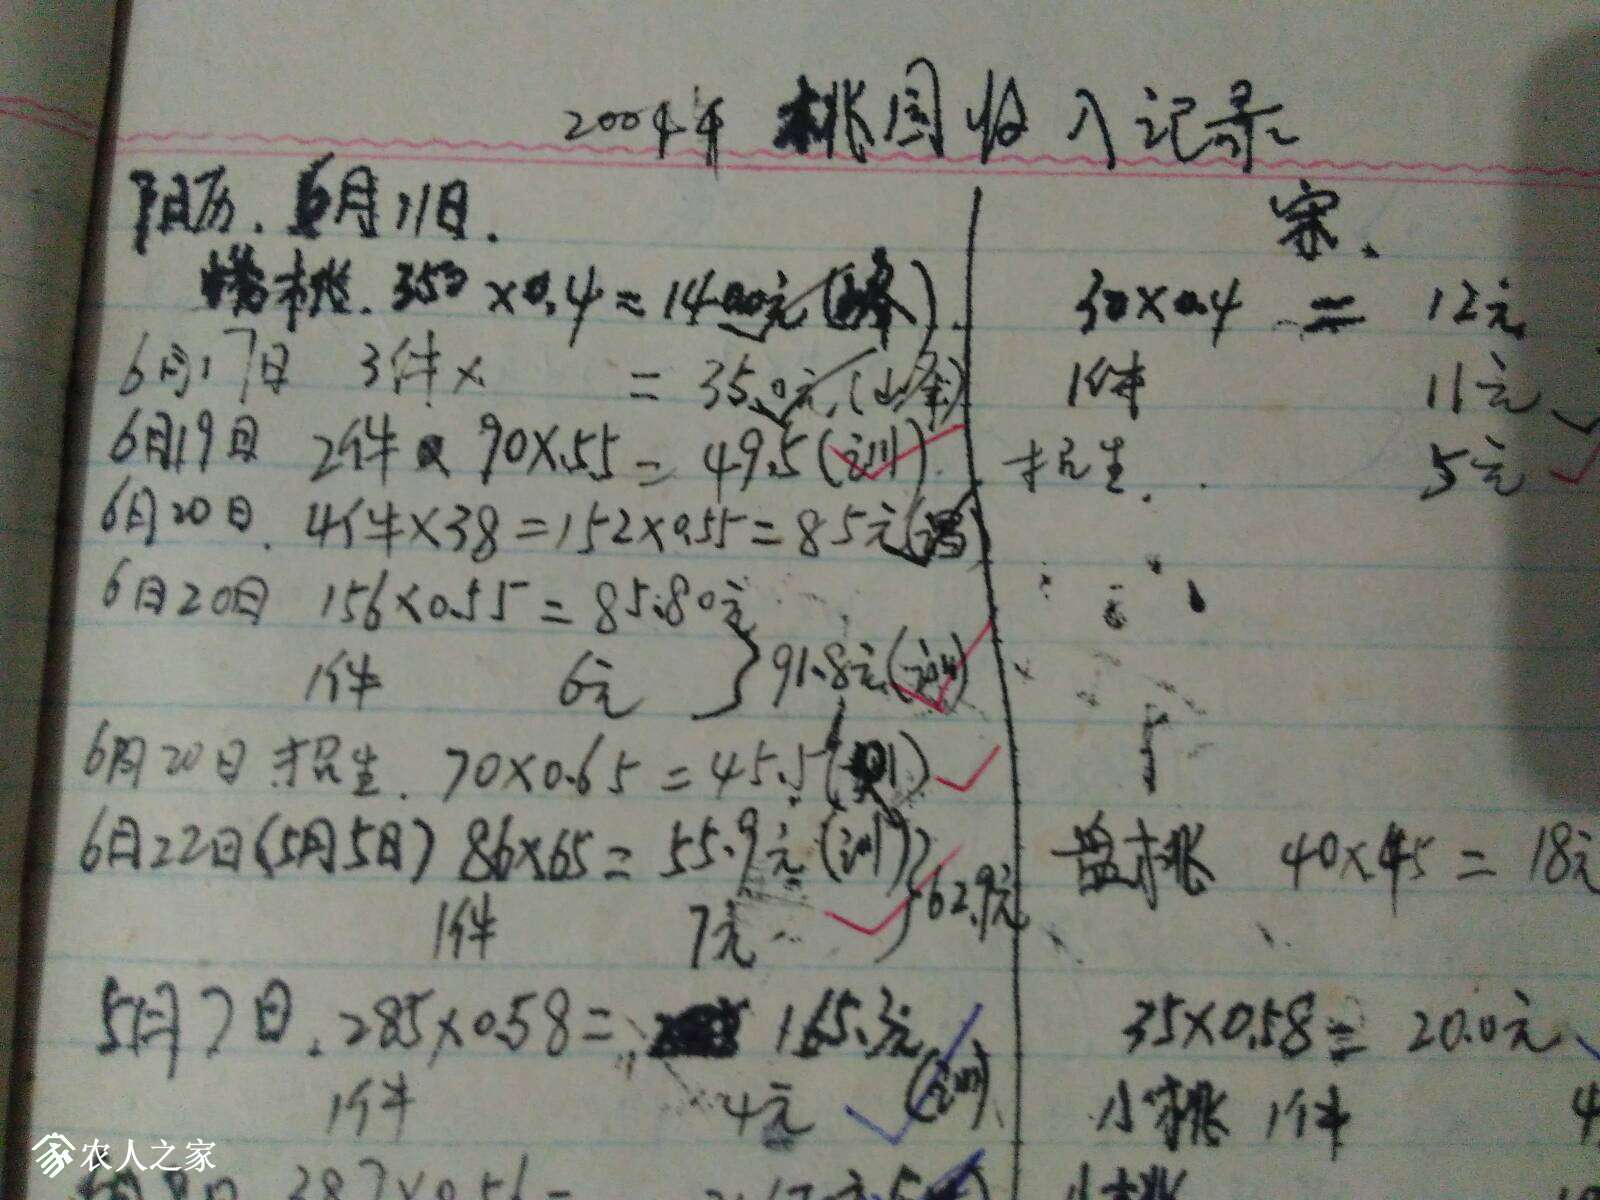 2004年 桃园收入记录
阳历. 6月11日.
宋.
桃. 350 × 0.4 = 140.0元
30×0.4 = 12元
6月17日 3件× = 35.0元
1件 11元
6月19日 2件 90×.55 = 49.5(训)
招生. 5元
6月20日. 4件×38=152×0.55=85元
6月20日 156×0.55=85.80元
1件 6元 } 91.8元(训)
6月20日 招生. 70×0.65=45.5
6月22日(5月5日) 86×65=55.9元(训)
盘桃 40×45=18元
1件 7元 62.9元
5月7日. 285×0.58= 165.3元
35×0.58= 20.0元
1件 4元 (训)
小桃 1件 4
387×0.56=
小桃
农人之家